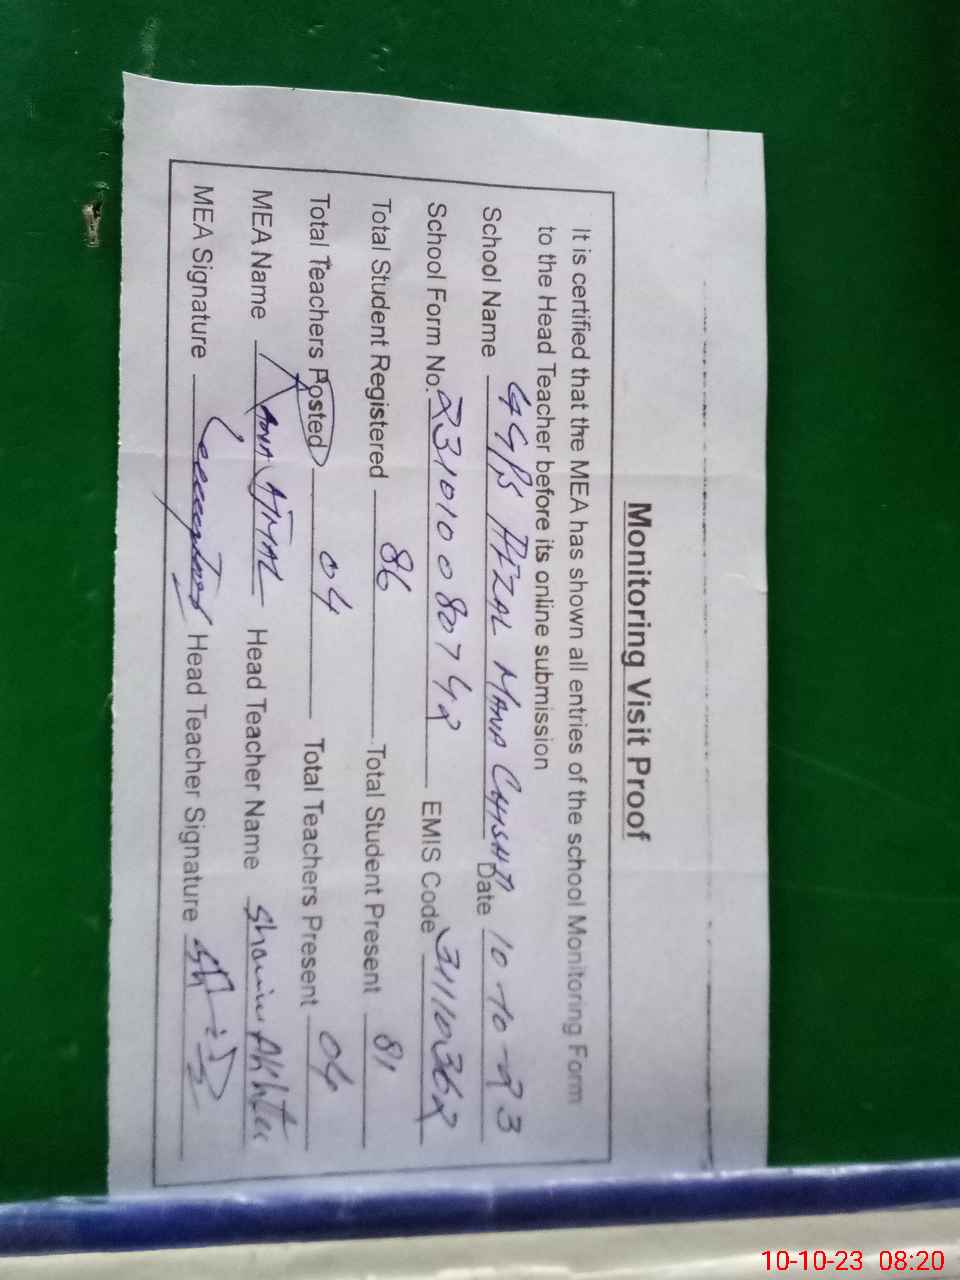 Monitoring Visit Proof
It is certified that the MEA has shown all entries of the school Monitoring Form
to the Head Teacher before its online submission
School Name GGPS AFZAL MANA CHISHTI Date 10-10-23
School Form No. 231010080742 EMIS Code 31110362
Total Student Registered 86 Total Student Present 81
Total Teachers Posted 04 Total Teachers Present 04
MEA Name AJMAL Head Teacher Name Akhter
MEA Signature Head Teacher Signature
10-10-23 08:20